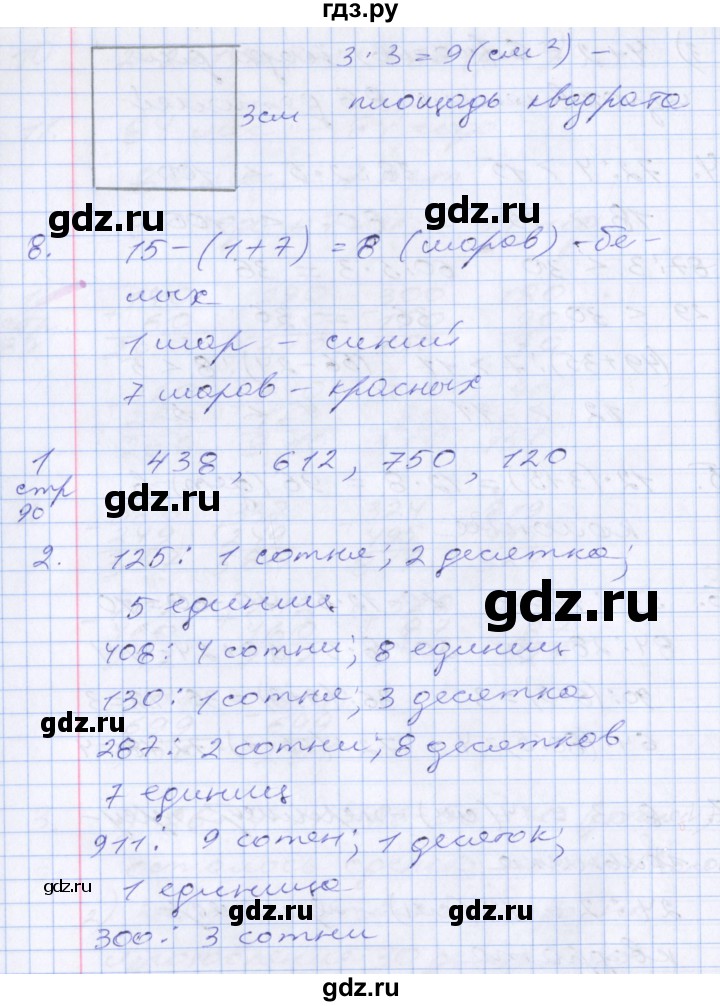 гдз.ру
3 · 3 = 9 (см²) –
3см площадь квадрата
gdz.ru gdz.ru
8. 15 – (1 + 7) = 8 (шаров) – бе-
лых
1 шар – синий
7 шаров – красных
1 438, 612, 750, 120
стр
90
gdz.ru
2. 125: 1 сотня; 2 десятка;
5 единиц
gdz.ru
408: 4 сотни; 8 единиц
130: 1 сотня; 3 десятка
gdz.ru
287: 2 сотни; 8 десятков
7 единиц
911: 9 сотен; 1 десяток;
1 единица
gdz.ru
gdz.ru gdz.ru
300: 3 сотни
gdz.ru